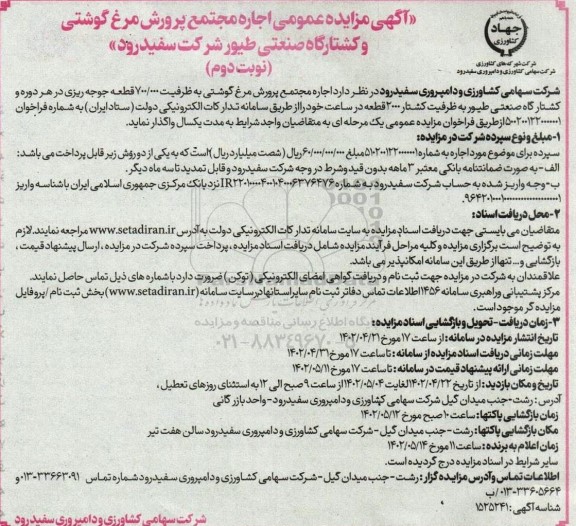 «آگهی مزایده عمومی اجاره مجتمع پرورش مرغ گوشتی
و کشتارگاه صنعتی طیور شرکت سفیدرود»
(نوبت دوم)
جهاد
کشاورزی
شرکت شهرک‌های کشاورزی
شرکت سهامی کشاورزی و دامپروری سفیدرود
شرکت سهامی کشاورزی و دامپروری سفیدرود در نظر دارد اجاره مجتمع پرورش مرغ گوشتی به ظرفیت ۷۰۰/۰۰۰ قطعه جوجه ریزی در هر دوره و
کشتارگاه صنعتی طیور به ظرفیت کشتار ۲۰۰۰ قطعه در ساعت خود را از طریق سامانه تدارکات الکترونیکی دولت (ستاد ایران) به شماره فراخوان
۵۰۰۲۰۰۱۲۲۰۰۰۰۰۱ از طریق فراخوان مزایده عمومی یک مرحله ای به متقاضیان واجد شرایط به مدت یکسال واگذار نماید.
۱- مبلغ و نوع سپرده شرکت در مزایده:
سپرده برای موضوع مورد اجاره به شماره مبلغ ۶۰/۰۰۰/۰۰۰/۰۰۰ ریال (شصت میلیارد ریال) است که به یکی از دو روش زیر قابل پرداخت می باشد:
الف- به صورت ضمانتنامه بانکی معتبر ۳ ماهه بدون قید و شرط در وجه شرکت سفیدرود و قابل تمدید تا سه ماه دیگر.
ب- وجه واریز شده به حساب شرکت سفیدرود به شماره نزد بانک مرکزی جمهوری اسلامی ایران با شناسه واریز
۲- محل دریافت اسناد:
متقاضیان می بایستی جهت دریافت اسناد مزایده به سایت سامانه تدارکات الکترونیکی دولت به آدرس www.setadiran.ir مراجعه نمایند. لازم
به توضیح است برگزاری مزایده و کلیه مراحل فرآیند مزایده شامل دریافت اسناد مزایده، پرداخت سپرده شرکت در مزایده، ارسال پیشنهاد قیمت،
بازگشایی و... تنها از طریق این سامانه امکانپذیر می باشد.
علاقمندان به شرکت در مزایده جهت ثبت نام و دریافت گواهی امضای الکترونیکی (توکن) ضرورت دارد با شماره های ذیل تماس حاصل نمایند.
مرکز پشتیبانی و راهبری سامانه ۱۴۵۶ اطلاعات تماس دفاتر ثبت نام سایر استانها در سایت سامانه (www.setadiran.ir) بخش ثبت نام / پروفایل
مزایده گر موجود است.
۳- زمان دریافت - تحویل و بازگشایی اسناد مزایده:
تاریخ انتشار مزایده در سامانه: از ساعت ۱۷ مورخ ۱۴۰۲/۰۴/۲۱
مهلت زمانی دریافت اسناد مزایده از سامانه: تا ساعت ۱۷ مورخ ۱۴۰۲/۰۴/۳۱
مهلت زمانی ارائه پیشنهاد قیمت در سامانه: تا ساعت ۱۷ مورخ ۱۴۰۲/۰۵/۱۱
تاریخ و مکان بازدید: از تاریخ ۱۴۰۲/۰۴/۲۲ لغایت ۱۴۰۲/۰۵/۰۴ از ساعت ۹ صبح الی ۱۲ به استثنای روزهای تعطیل،
آدرس: رشت- جنب میدان گیل شرکت سهامی کشاورزی و دامپروری سفیدرود- واحد بازرگانی
زمان بازگشایی پاکتها: ساعت ۱۰ صبح مورخ ۱۴۰۲/۰۵/۱۲
مکان بازگشایی پاکتها: رشت- جنب میدان گیل- شرکت سهامی کشاورزی و دامپروری سفیدرود سالن هفت تیر
زمان اعلام به برنده: ساعت ۱۱ مورخ ۱۴۰۲/۰۵/۱۴
سایر شرایط در اسناد مزایده درج گردیده است.
اطلاعات تماس و آدرس مزایده گزار: رشت- جنب میدان گیل- شرکت سهامی کشاورزی و دامپروری سفیدرود شماره تماس ۰۱۳-۳۳۶۶۳۰۹۱ و
۰۱۳-۳۳۶۰۵۶۶۴ /ب
شناسه آگهی: ۱۵۲۵۲۴۱
شرکت سهامی کشاورزی و دامپروری سفیدرود
پایگاه اطلاع رسانی مناقصه و مزایده
۰۲۱-۸۸۳۴۹۶۷۰